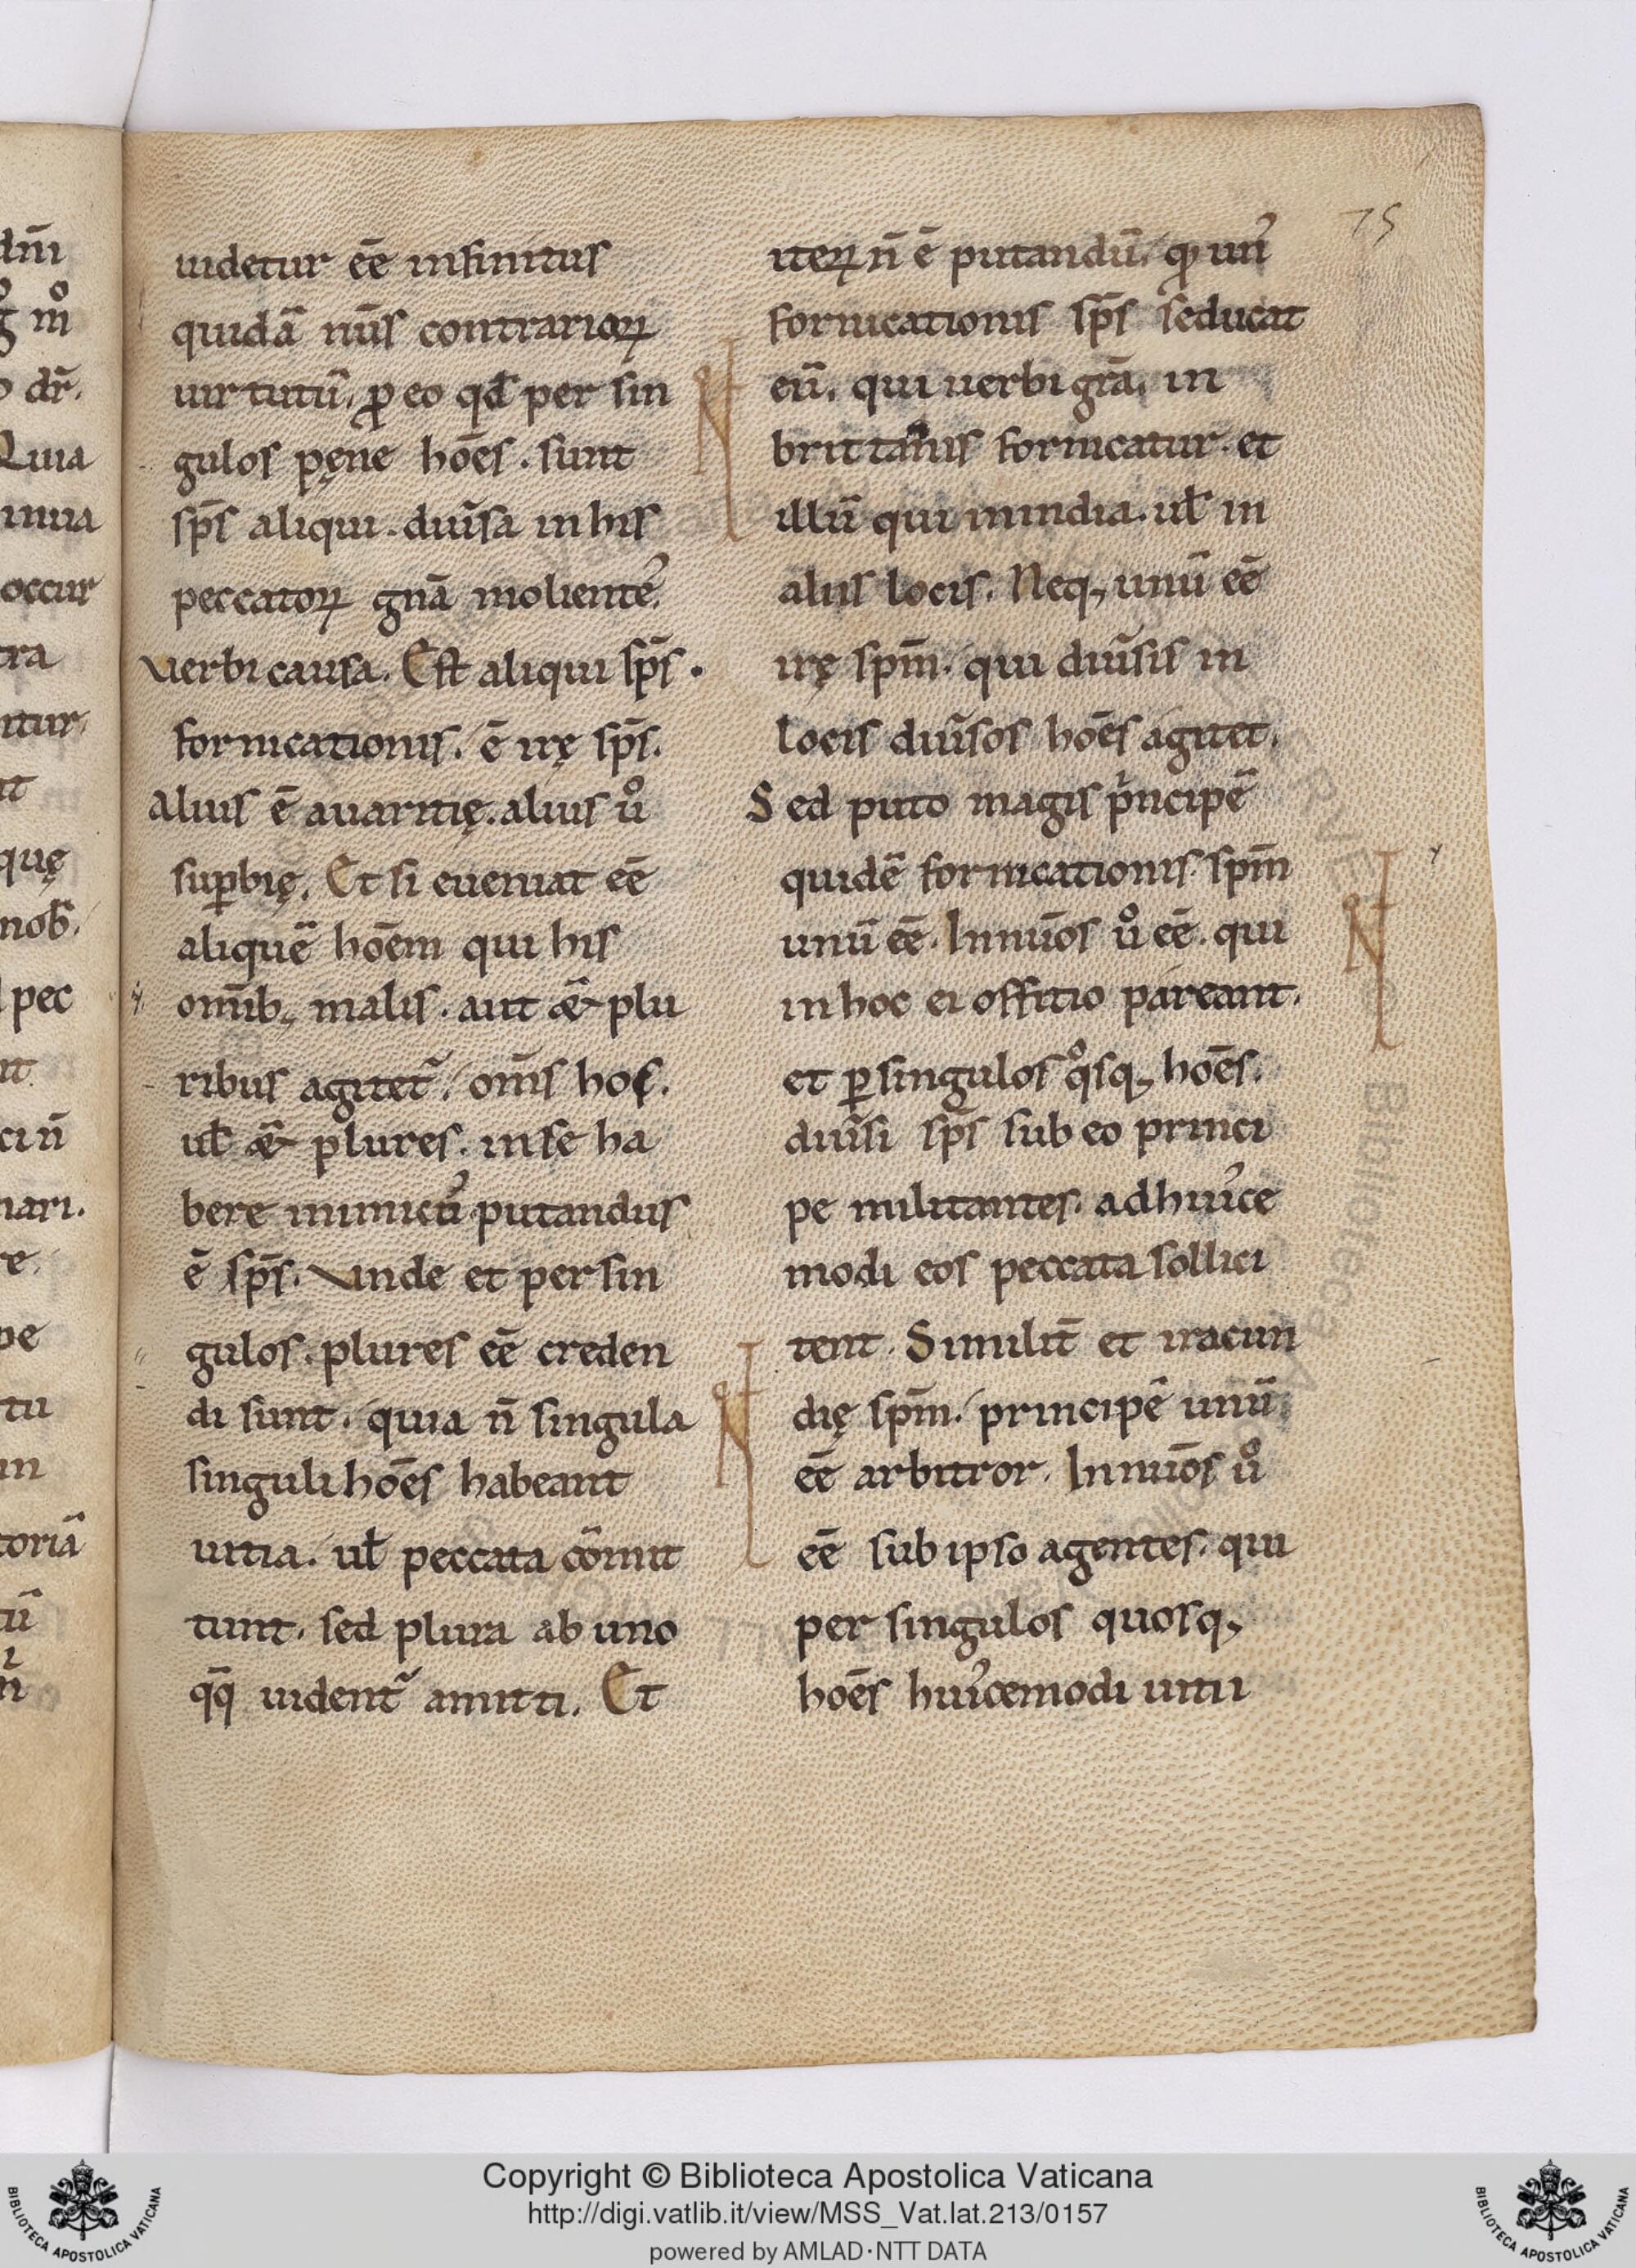 75
uidetur eē infinitus
quidā nūs contrarioꝝ
uirtutū, ꝓ eo qđ per sin
gulos pęne hōes . sunt
sp̄s aliqui . diũsa in his
peccatoꝝ gn̄a molienteˀ.
Verbi causa. Est aliqui sp̄s .
fornicationis. ē irę sp̄s.
Alius ē auaritię. alius uͦ
suꝑbię. Et si eueniat eē
aliquē hoēm qui his
omīb; malis . aut æ̃ plu
ribus agitet᷑. om̄s hos.
uł æ̃ plures . in se ha
bere inimicuˀ putandus
ē sp̄s. Vnde et per sin
gulos . plures eē creden
di sunt . quia n̄ singula
singuli hōes habeant
uitia . uł peccata cōmit
tunt . sed plura ab uno
qq̄ uident᷑ amitti. Et
iteꝝ n̄ ē putandū. qͩ unˀ
fornicationis sp̄s seducat
eū. qui uerbi grā. in
brittanīs fornicatur . et
illū qui in india . uł in
aliis locis. Neq; unū eē
irę sp̄m. qui diũsis in
locis diũsos hōes agitet.
Sed puto magis pͥncipē
quidē fornicationis sp̄m
unū eē. Innūos uͦ eē . qui
in hoc ei offitio pareant.
et ꝑ singulos qͦsq; hōes.
diũsi sp̄s sub eo princi
pe militantes. ad huiˀce
modi eos peccata sollici
tent . Similit̄ et iracun
dię sp̄m. principē unū
eē arbitror. Innūos uͦ
eē sub ipso agentes . qui
per singulos quosq;
hōes huiˀcemodi uitii
dn̄i
dr̄.
Quia
occur
tra
itur
quę
nob̄.
pec
ci n̄
pe
tu
in
toriā
n̄
Copyright © Biblioteca Apostolica Vaticana
http://digi.vatlib.it/view/MSS_Vat.lat.213/0157
powered by AMLAD·NTT DATA
BIBLIOTECA APOSTOLICA VATICANA
BIBLIOTECA APOSTOLICA VATICANA